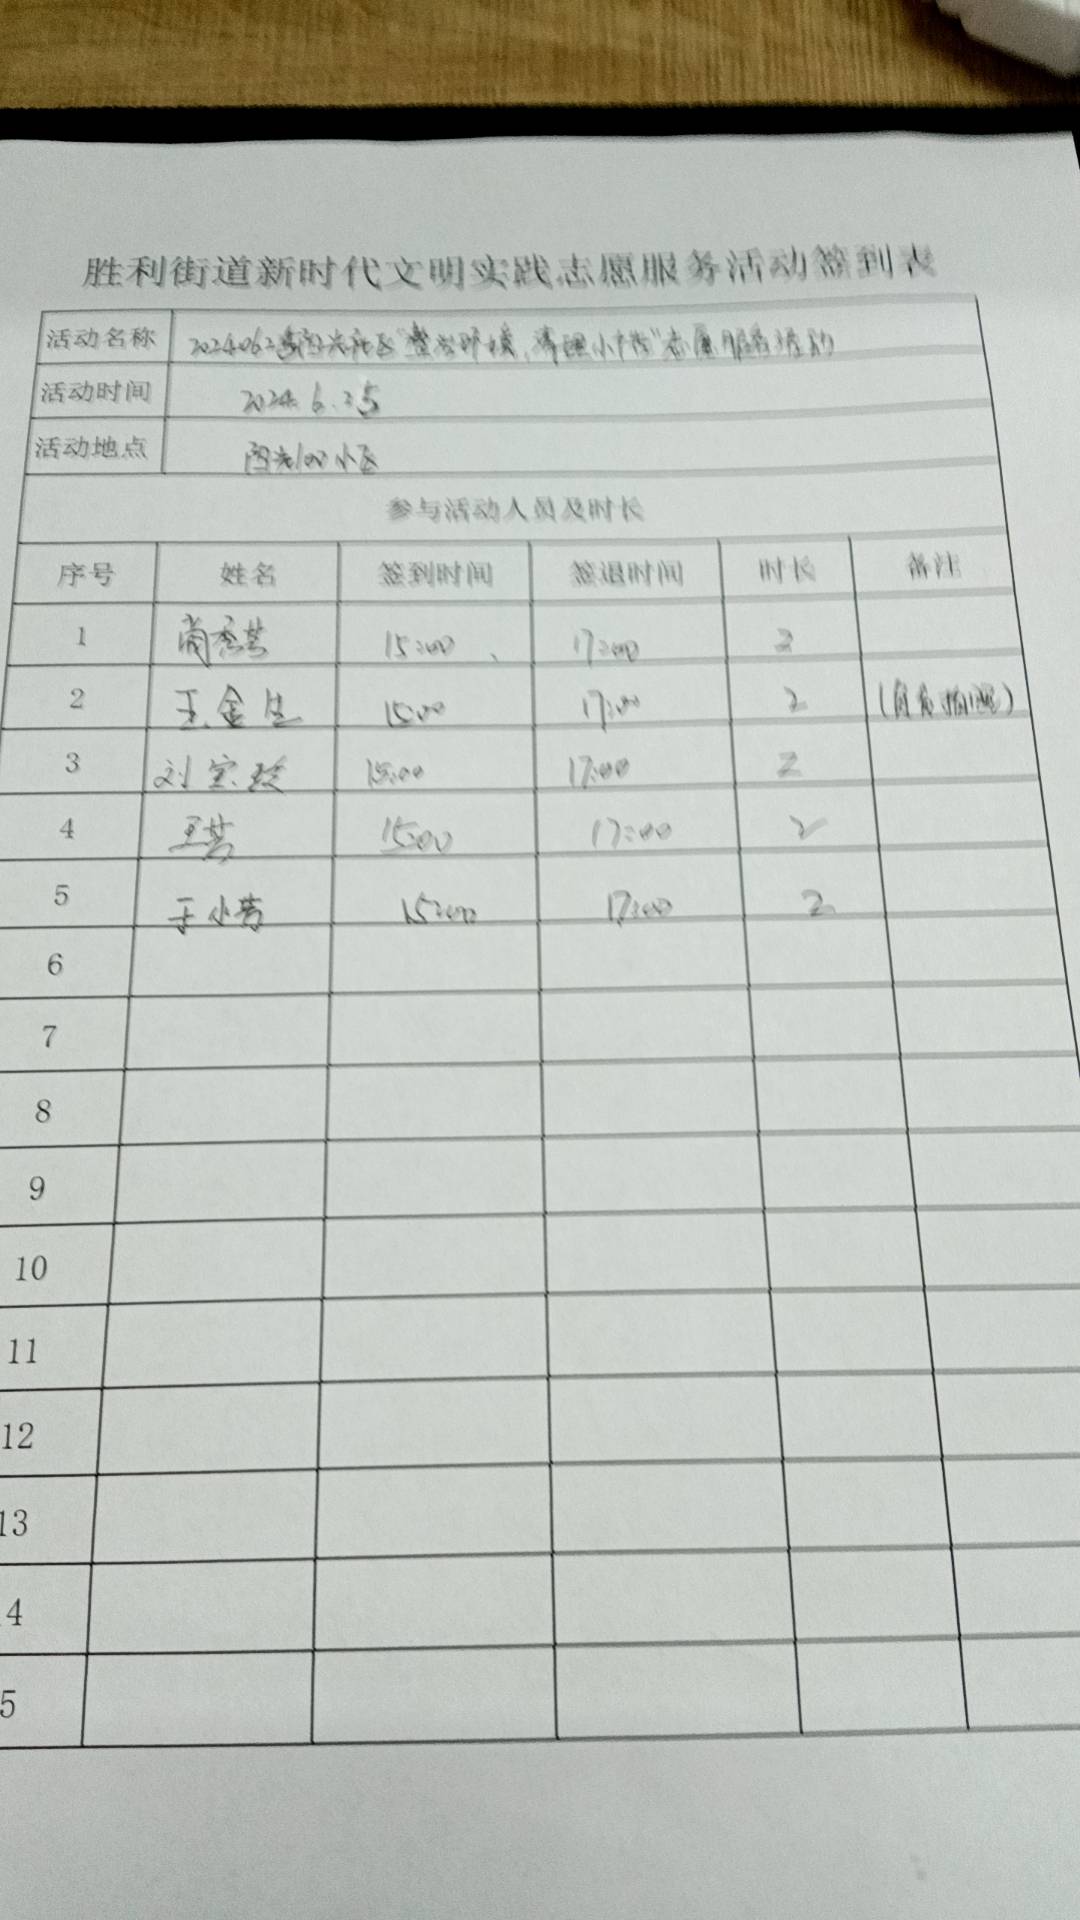 胜利街道新时代文明实践志愿服务活动签到表
活动名称 2024062 阳光社区"整治环境,清理小广告"志愿服务活动
活动时间 2024.6.25
活动地点 阳光100小区
参与活动人员及时长
序号 姓名 签到时间 签退时间 时长 备注
1 15:00 17:00 2
2 王金生 15:00 17:00 2 (负责拍照)
3 刘宝 15:00 17:00 2
4 王 15:00 17:00 2
5 于小 15:00 17:00 2
6
7
8
9
10
11
12
13
4
5